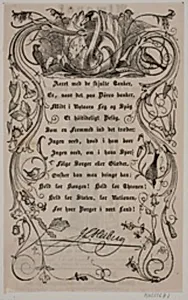 Aaret med de skjulte Tanker,
Er, naar det paa Døren banker,
Midt i Vinters Leg og Spøg
Et høitideligt Besøg.
Som en Fremmed ind det træder;
Ingen veed, hvad i ham boer
Ingen veed, om i hans Spor
Følge Sorger eller Glæder.
Ønsker kan man bringe kun:
Held for Kongen! Held for Thronen!
Held for Staten, for Nationen,
For hver Borger i vort Land!